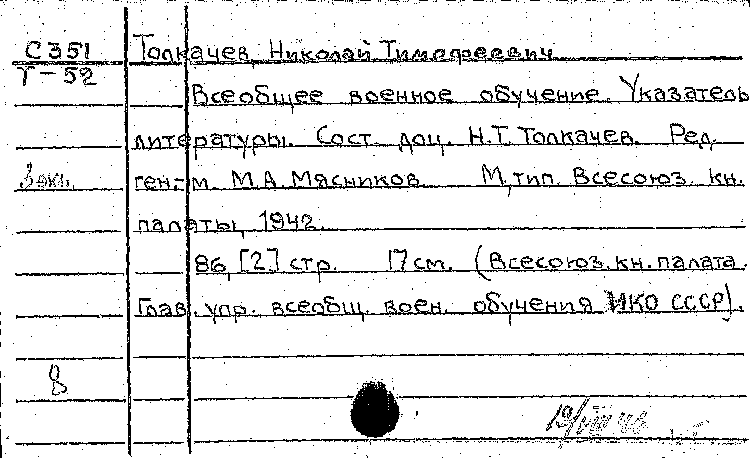 С351 Толкачев, Николай Тимофеевич
Т-52
Всеобщее военное обучение. Указатель
литературы. Сост. доц. Н.Т. Толкачев. Ред.
3 экз. ген.-м. М.А. Мясников. М., тип. Всесоюз. кн.
палаты, 1942.
86, [2] стр. 17 см. (Всесоюз. кн. палата.
Глав. упр. всеобщ. воен. обучения НКО СССР).
8
19/VIII 46